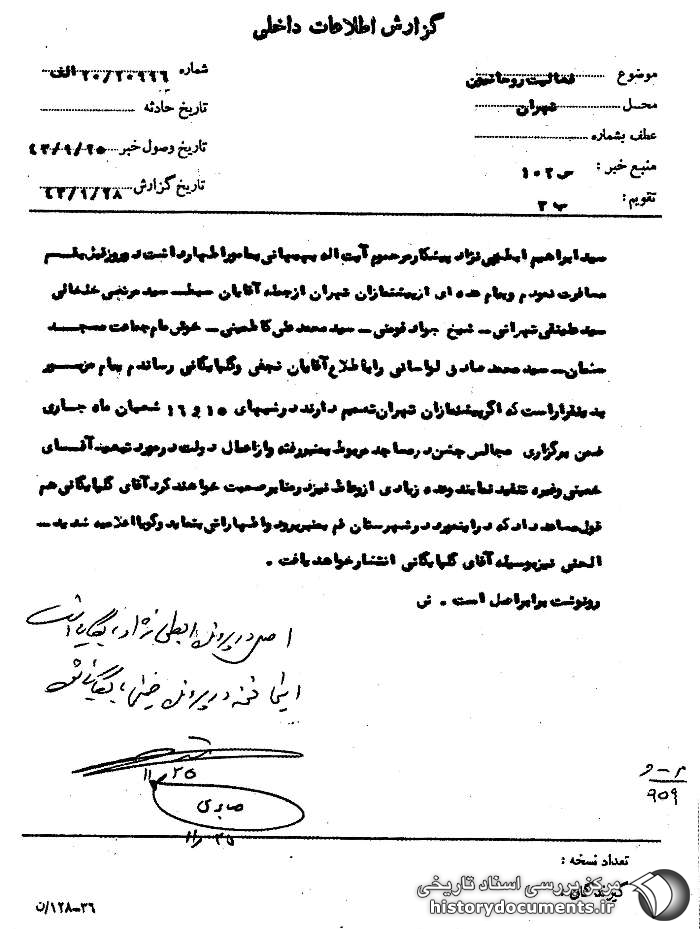 گزارش اطلاعات داخلی
موضوع فعالیت روحانیون
شماره ۲۰/۲۰۹۹۶ الف
محل تهران
تاریخ حادثه
عطف بشماره
تاریخ وصول خبر ۴۳/۹/۲۵
منبع خبر : س ۱۰۲
تاریخ گزارش ۴۳/۹/۲۸
تقویم : ب ۳
سید ابراهیم ابطحی نژاد پیشکار مرحوم آیت اله بهبهانی بمامور اظهار داشت دو روز قبل بقم
مسافرت نمودم و پیام عده ای از پیشنمازان تهران از جمله آقایان سبط ــ سید مرتضی خلخالی
سید علینقی تهرانی ــ شیخ جواد فومنی ــ سید محمد علی کاظمینی ــ خوئی امام جماعت مسجد
سمنان ــ سید محمد صادق لواسانی را باطلاع آقایان نجفی و گلپایگانی رساندم پیام مزبور
بدینقرار است که اگر پیشنمازان تهران تصمیم دارند در شبهای ۱۵ و ۱۶ شعبان ماه جاری
ضمن برگزاری مجالس جشن در مساجد مربوط بمنبر رفته و از اعمال دولت در مورد تبعید آقای
خمینی و غیره تنقید نمایند و عده زیادی از وعاظ نیز در منابر صحبت خواهند کرد آقای گلپایگانی هم
قول مساعد داد که در اینمورد در شهرستان قم بمنبر برود و اظهاراتی بنماید و گویا اعلامیه شدید ــ
الحنی نیز بوسیله آقای گلپایگانی انتشار خواهد یافت .
رونوشت برابر اصل است . ش
اصل در پرونده ابطحی نژاد بایگانی است
این نسخه در پرونده خمینی بایگانی شود
۲۵/۱۱
صابری
۲۵/۱۱
م - و
۹۵۹
تعداد نسخه :
گیرندگان :
۳۶-۱۲۸/ن
مرکز بررسی اسناد تاریخی
historydocuments.ir